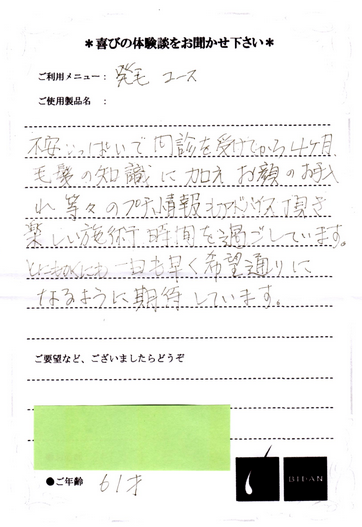 ＊喜びの体験談をお聞かせ下さい＊
ご利用メニュー： 発毛 コース
ご使用製品名 ：
不安いっぱいで問診を受けてから4ヶ月
毛髪の知識に加え お顔のお手入
れ 等々のプチ情報 アドバイス 頂き
楽しい施術時間を過ごしています。
一日も早く希望通りに
なるように期待しています。
ご要望など、ございましたらどうぞ
●ご年齢 61才
BIDAN